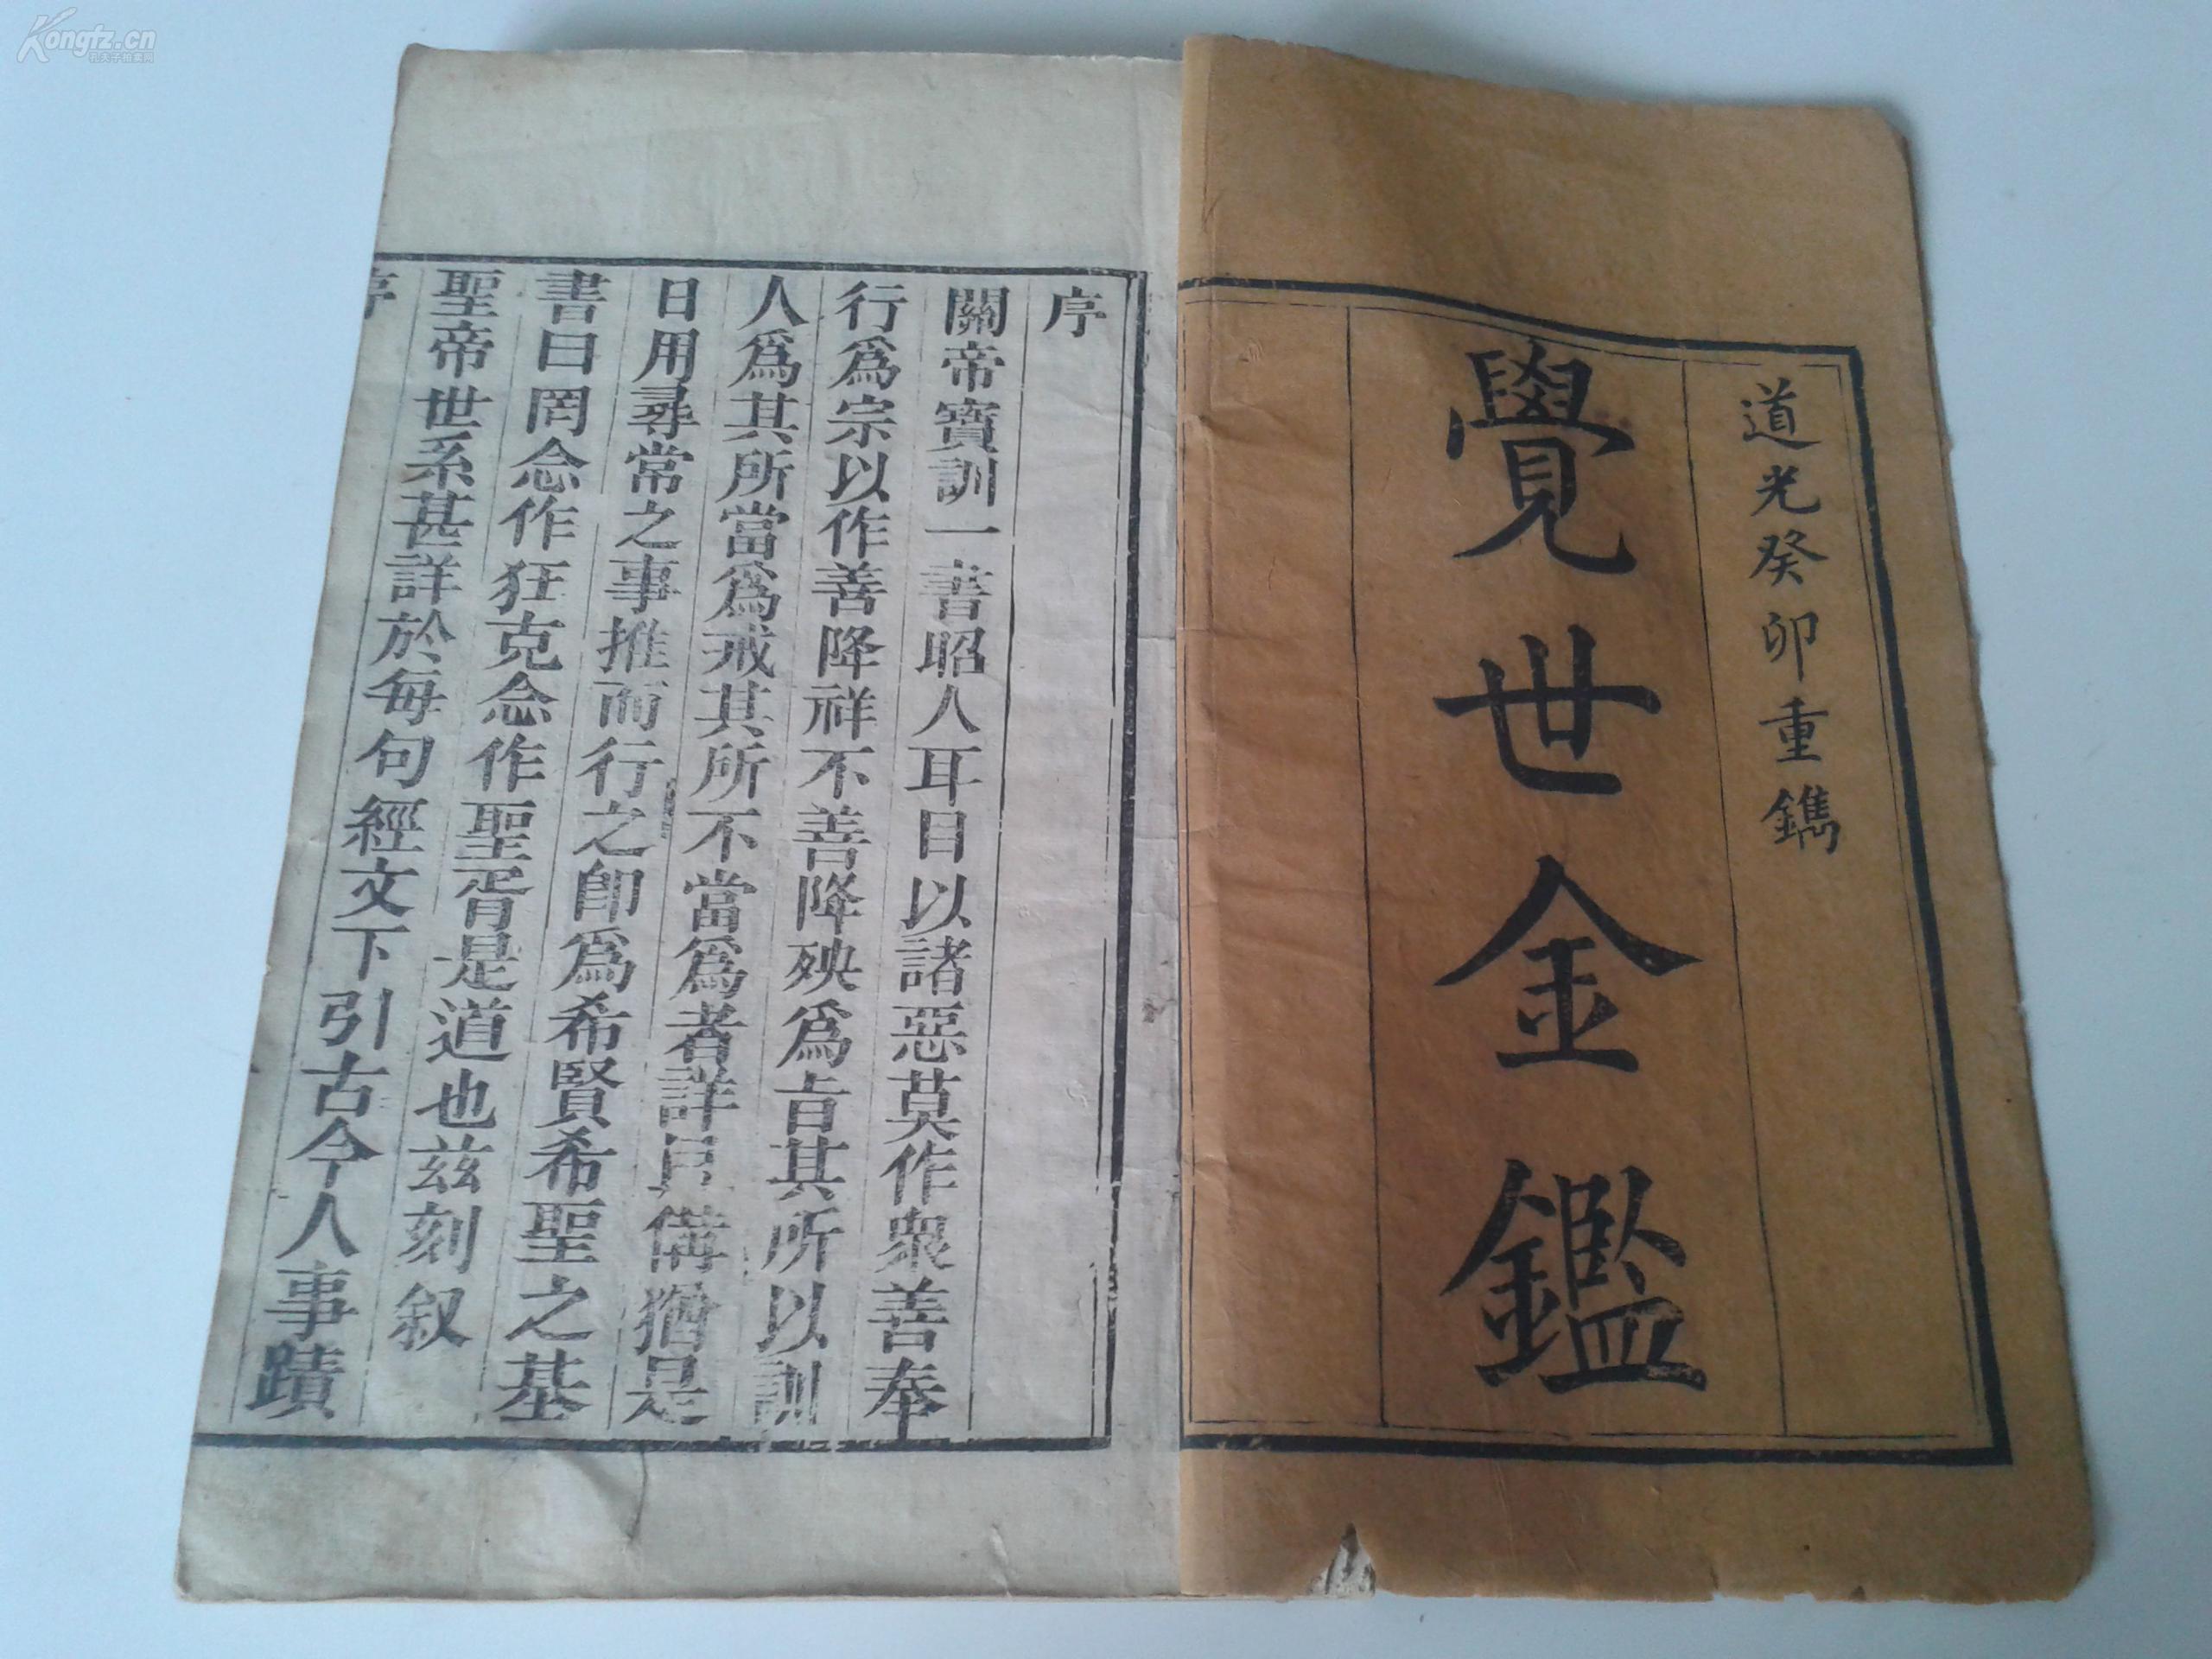 道光癸卯重鐫
覺世金鑑
序
關帝寶訓一書昭人耳目以諸惡莫作衆善奉
行爲宗以作善降祥不善降殃爲旨其所以訓
人爲其所當爲戒其所不當爲者詳且備猶是
日用尋常之事推而行之卽爲希賢希聖之基
書曰罔念作狂克念作聖胥是道也茲刻叙
聖帝世系甚詳於每句經文下引古今人事蹟
序
Kongfz.cn